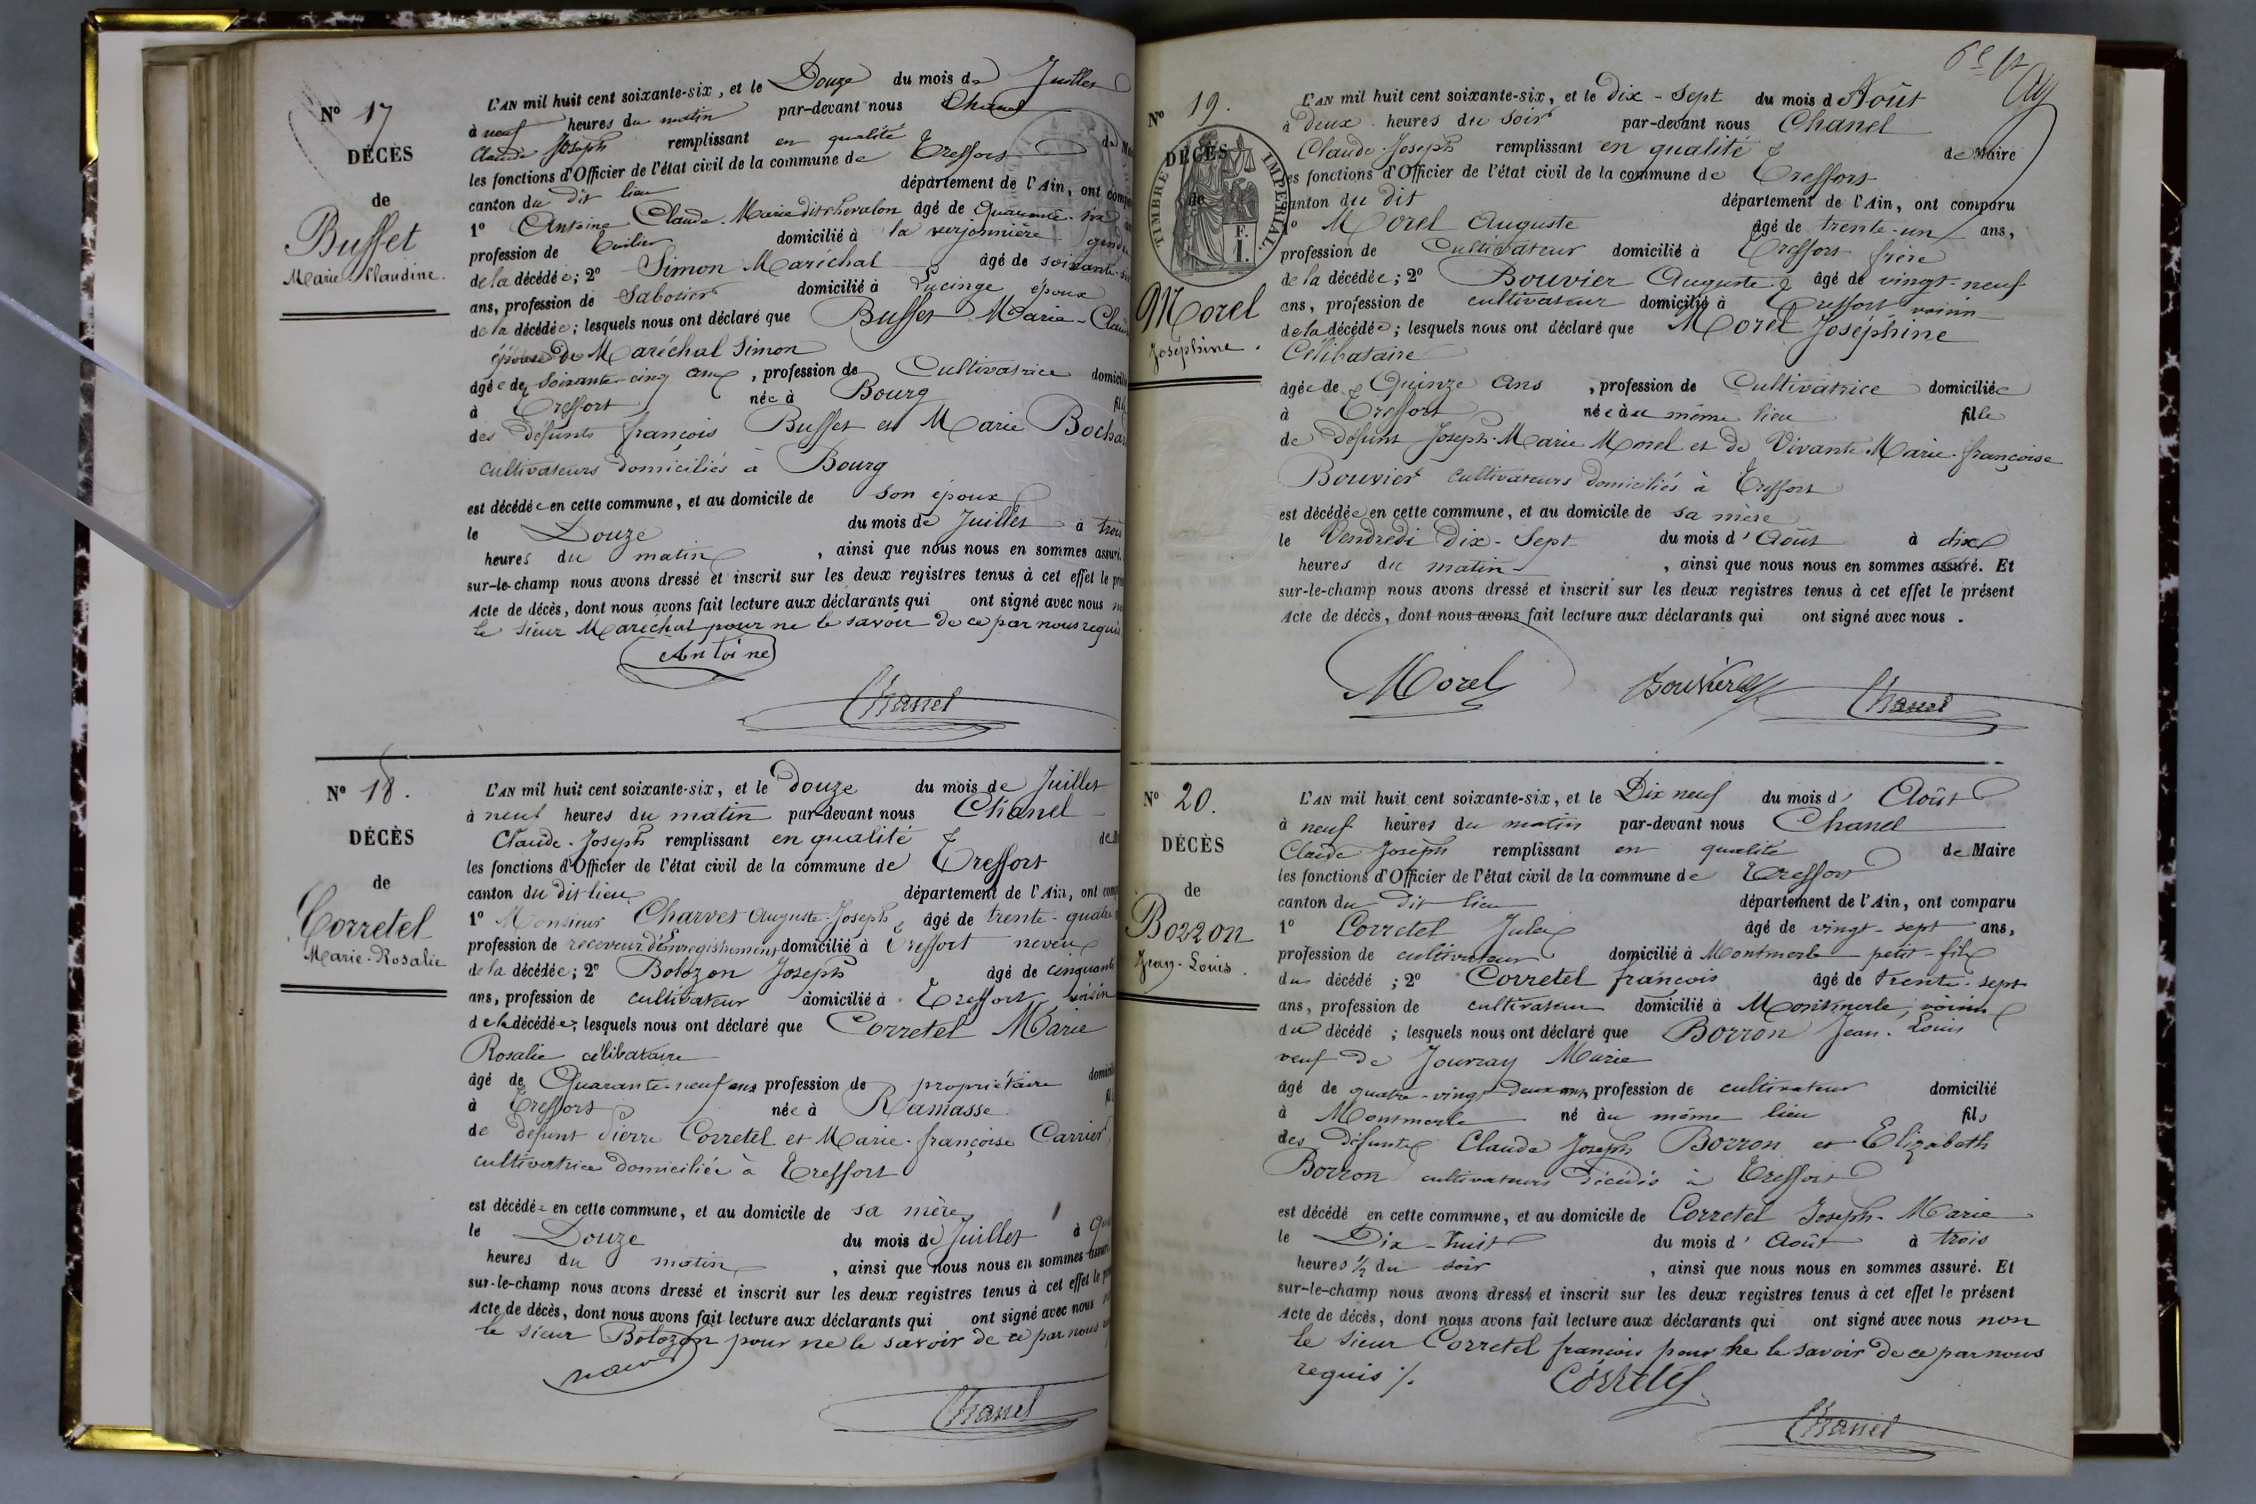 Nº 17
DÉCÈS
de
Buffet
Marie Claudine.
L'AN mil huit cent soixante-six, et le Douze du mois de Juillet
à neuf heures du matin par-devant nous Chanel
Claude Joseph remplissant en qualité de
les fonctions d'Officier de l'état civil de la commune de Treffort
canton du dit lieu département de l'Ain, ont
1º Antoine Claude-Marie dit chevalon âgé de Quarante-six
profession de domicilié à la verjonnière
de la décédée; 2º Simon Maréchal âgé de soixante
ans, profession de Sabotier domicilié à Lucinge époux
de la décédée; lesquels nous ont déclaré que Buffet Marie-
épouse de Maréchal Simon
âgée de soixante-cinq ans, profession de Cultivatrice
à Treffort née à Bourg
des défunts françois Buffet et Marie
cultivateurs domiciliés à Bourg
est décédée en cette commune, et au domicile de son époux
le Douze du mois de Juillet à trois
heures du matin, ainsi que nous nous en sommes assuré.
sur-le-champ nous avons dressé et inscrit sur les deux registres tenus à cet effet le
Acte de décès, dont nous avons fait lecture aux déclarants qui ont signé avec nous
le sieur Maréchal pour ne le savoir de ce par nous requis
Antoine
Chanel
Nº 18.
DÉCÈS
de
Corretel
Marie-Rosalie
L'AN mil huit cent soixante-six, et le Douze du mois de Juillet
à neuf heures du matin par-devant nous Chanel
Claude-Joseph remplissant en qualité
les fonctions d'Officier de l'état civil de la commune de Treffort
canton du dit lieu département de l'Ain, ont
1º Monsieur Charvet Auguste-Joseph, âgé de trente-quatre
profession de receveur d'Enregistrement domicilié à Treffort neveu
de la décédée; 2º Bolozon Joseph âgé de cinquante
ans, profession de cultivateur domicilié à Treffort, voisin
de la décédée; lesquels nous ont déclaré que Corretel Marie
Rosalie célibataire
âgé de Quarante-neuf ans profession de propriétaire
à Treffort née à Ramasse
de défunt Pierre Corretel et Marie-françoise Carrier
cultivatrice domiciliée à Treffort
est décédée en cette commune, et au domicile de sa mère
le Douze du mois de Juillet à
heures du matin, ainsi que nous nous en sommes assuré
sur-le-champ nous avons dressé et inscrit sur les deux registres tenus à cet effet le
Acte de décès, dont nous avons fait lecture aux déclarants qui ont signé avec nous
le sieur Bolozon pour ne le savoir de ce par nous
Chanel
Nº 19.
DÉCÈS
de
TIMBRE IMPÉRIAL
F.
1.
Morel
Joséphine.
L'AN mil huit cent soixante-six, et le dix-Sept du mois d Août
à deux heures du soir par-devant nous Chanel
Claude-Joseph remplissant en qualité de Maire
les fonctions d'Officier de l'état civil de la commune de Treffort
canton du dit département de l'Ain, ont comparu
1º Morel Auguste âgé de trente-un ans,
profession de Cultivateur domicilié à Treffort frère
de la décédée; 2º Bouvier Auguste âgé de vingt-neuf
ans, profession de cultivateur domicilié à Treffort voisin
de la décédée; lesquels nous ont déclaré que Morel Joséphine
Célibataire
âgée de Quinze ans, profession de Cultivatrice domiciliée
à Treffort née au même lieu fille
de défunt Joseph-Marie Morel et de Vivante Marie-françoise
Bouvier cultivateurs domiciliés à Treffort
est décédée en cette commune, et au domicile de sa mère
le Vendredi Dix-Sept du mois d'Août à dix
heures du matin, ainsi que nous nous en sommes assuré. Et
sur-le-champ nous avons dressé et inscrit sur les deux registres tenus à cet effet le présent
Acte de décès, dont nous avons fait lecture aux déclarants qui ont signé avec nous.
Morel Bouvier Chanel
Nº 20.
DÉCÈS
de
Borron
Jean-Louis.
L'AN mil huit cent soixante-six, et le Dix neuf du mois d'Août
à neuf heures du matin par-devant nous Chanel
Claude Joseph remplissant en qualité de Maire
les fonctions d'Officier de l'état civil de la commune de Treffort
canton du dit lieu département de l'Ain, ont comparu
1º Corretel Jules âgé de vingt-sept ans,
profession de cultivateur domicilié à Montmerle petit-fils
du décédé; 2º Corretel françois âgé de trente-sept
ans, profession de cultivateur domicilié à Montmerle, voisin
du décédé; lesquels nous ont déclaré que Borron Jean-Louis
veuf de Marie
âgé de quatre-vingt-deux ans, profession de cultivateur domicilié
à Montmerle né au même lieu fils
des défunts Claude Joseph Borron et Elizabeth
Borron cultivateurs décédés à Treffort
est décédé en cette commune, et au domicile de Corretel Joseph-Marie
le Dix-huit du mois d'Août à trois
heures ½ du soir, ainsi que nous nous en sommes assuré. Et
sur-le-champ nous avons dressé et inscrit sur les deux registres tenus à cet effet le présent
Acte de décès, dont nous avons fait lecture aux déclarants qui ont signé avec nous non
le sieur Corretel françois pour ne le savoir de ce par nous
requis %.
Corretel
Chanel